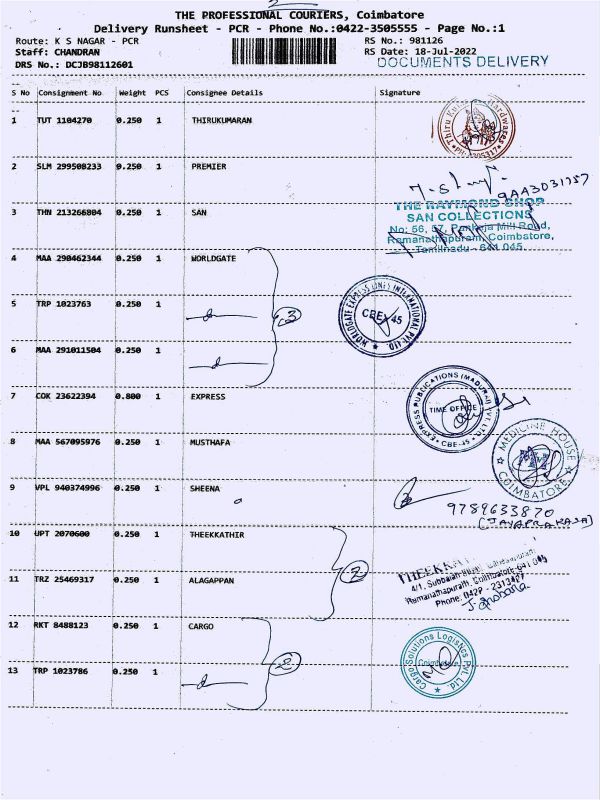 THE PROFESSIONAL COURIERS, Coimbatore
Delivery Runsheet - PCR - Phone No.:0422-3505555 - Page No.:1
Route: K S NAGAR - PCR
RS No.: 981126
Staff: CHANDRAN
RS Date: 18-Jul-2022
DRS No.: DCJB98112601
DOCUMENTS DELIVERY
S No Consignment No Weight PCS Consignee Details Signature
1 TUT 1104270 0.250 1 THIRUKUMARAN
2 SLM 299508233 0.250 1 PREMIER
9AA3D31757
3 THN 213266804 0.250 1 SAN
THE RAYMOND SHOP
SAN COLLECTIONS
No: 56, 57, Pankaja Mill Road,
Ramanathapuram, Coimbatore,
Tamilnadu - 641 045.
4 MAA 290462344 0.250 1 WORLDGATE
5 TRP 1023763 0.250 1
3
WORLDGATE EXPRESS LINES INTERNATIONAL PVT. LTD.
CBE-45
6 MAA 291011504 0.250 1
7 COK 23622394 0.800 1 EXPRESS
EXPRESS PUBLICATIONS (MADURAI) PVT. LTD.
TIME OFFICE
CBE-45
8 MAA 567095976 0.250 1 MUSTHAFA
MEDICINE HOUSE
COIMBATORE
9 VPL 940374996 0.250 1 SHEENA
9789633870
(JAYAPRAKASH)
10 UPT 2070600 0.250 1 THEEKKATHIR
2
4/1, Subbaiah
Ramanathapuram, Coimbatore-641 045
Phone: 0422 - 2313427
11 TRZ 25469317 0.250 1 ALAGAPPAN
12 RKT 8488123 0.250 1 CARGO
2
Cargo Solutions Logistics Pvt Ltd
Coimbatore
13 TRP 1023786 0.250 1